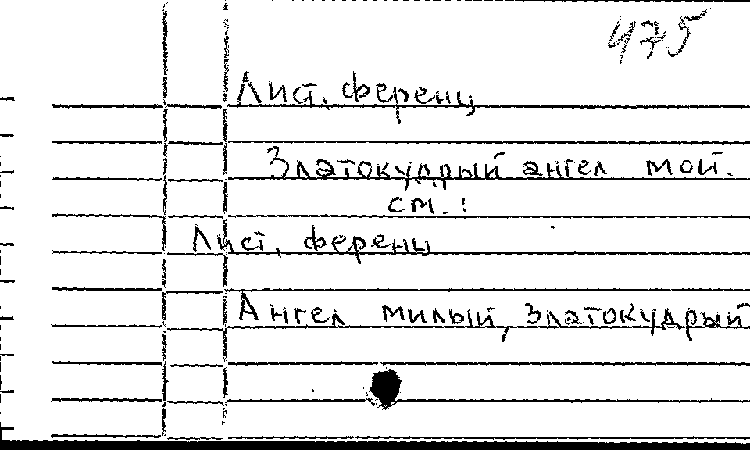 475
Лист, Ференц
Златокудрый ангел мой.
см.:
Лист, Ференц
Ангел милый, златокудрый